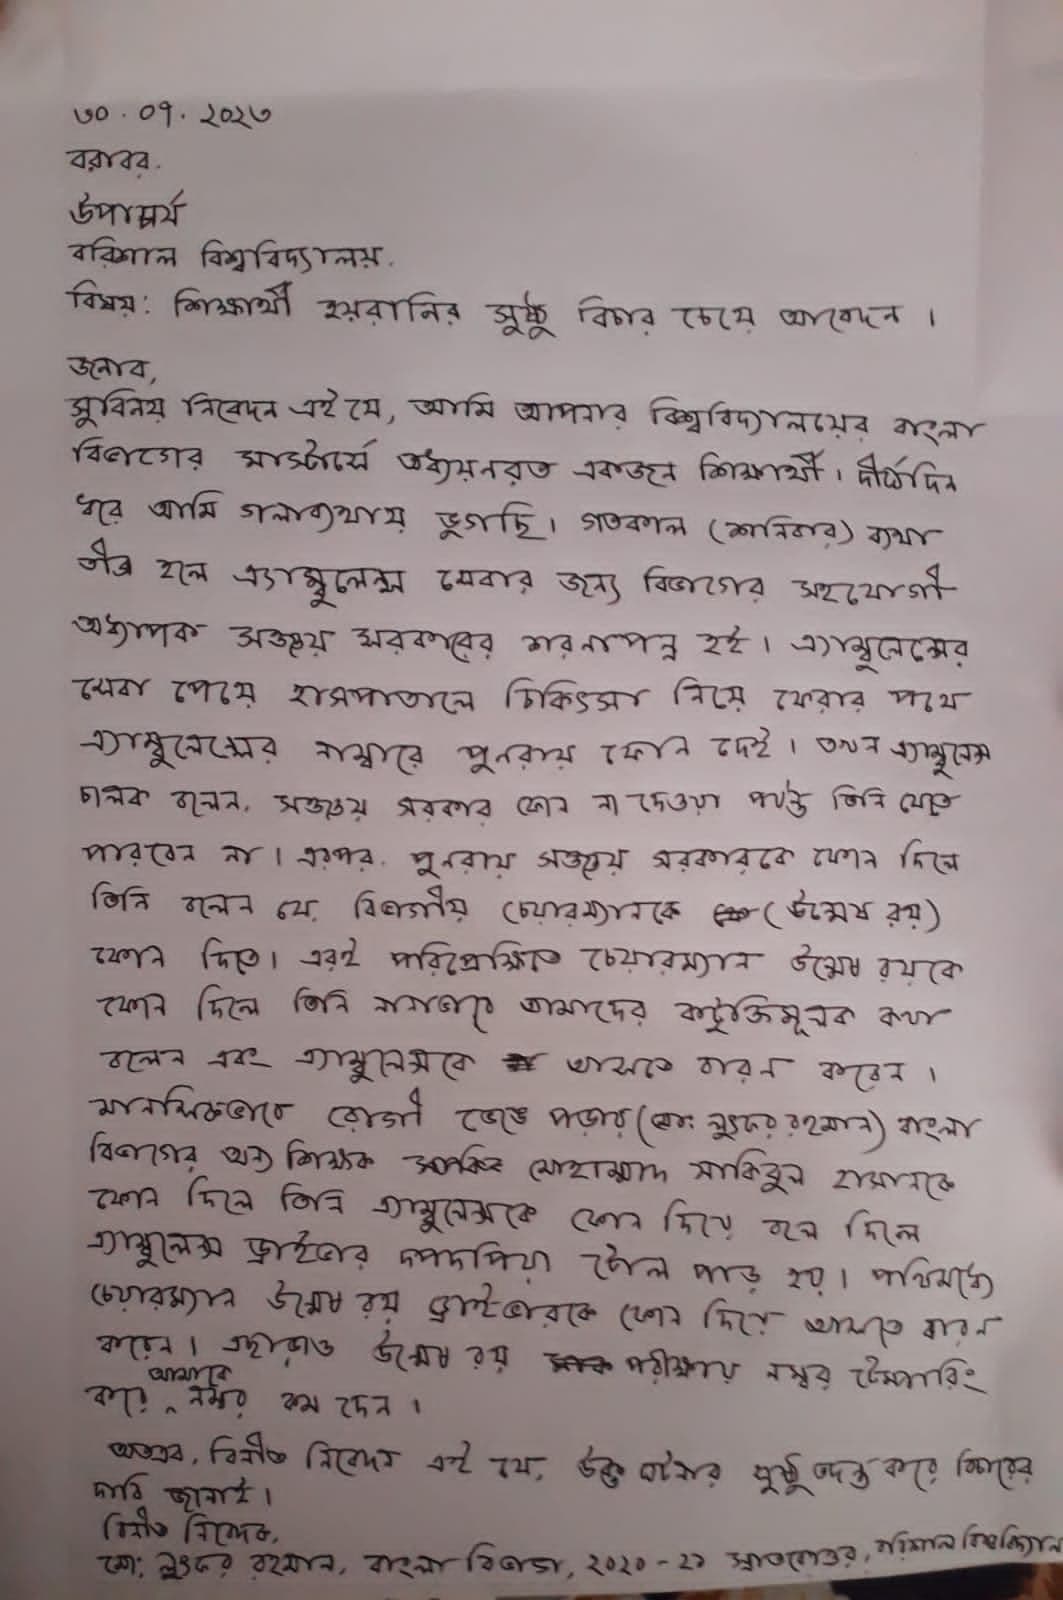 ৩০.০৭.২০২৩
বরাবর.
উপাচার্য
বরিশাল বিশ্ববিদ্যালয়.
বিষয়: শিক্ষার্থী হয়রানির সুষ্ঠু বিচার চেয়ে আবেদন ।
জনাব,
সুবিনয় নিবেদন এই যে, আমি আপনার বিশ্ববিদ্যালয়ের বাংলা
বিভাগের মাস্টার্সে অধ্যয়নরত একজন শিক্ষার্থী। দীর্ঘদিন
ধরে আমি গলাব্যথায় ভুগছি। গতকাল (শনিবার) ব্যথা
তীব্র হলে এ্যাম্বুলেন্স সেবার জন্য বিভাগের সহযোগী
অধ্যাপক সঞ্জয় সরকারের শরনাপন্ন হই। এ্যাম্বুলেন্সের
সেবা পেয়ে হাসপাতালে চিকিৎসা নিয়ে ফেরার পথে
এ্যাম্বুলেন্সের নাম্বারে পুনরায় ফোন দেই। তখন এ্যাম্বুলেন্স
চালক বলেন, সঞ্জয় সরকার ফোন না দেওয়া পর্যন্ত তিনি যেতে
পারবেন না। এরপর. পুনরায় সঞ্জয় সরকারকে ফোন দিলে
তিনি বলেন যে, বিভাগীয় চেয়ারম্যানকে (উন্মেষ রয়)
ফোন দিতে। এরই পরিপ্রেক্ষিতে চেয়ারম্যান উন্মেষ রয়কে
ফোন দিলে তিনি নানাভাবে আমাদের কটুক্তিমূলক কথা
বলেন এবং এ্যাম্বুলেন্সকে আসতে বারন করেন ।
মানসিকভাবে রোগী ভেঙে পড়ায় (মো: লুৎফর রহমান) বাংলা
বিভাগের অন্য শিক্ষক মোহাম্মাদ সাকিবুল হাসানকে
ফোন দিলে তিনি এ্যাম্বুলেন্সকে ফোন দিয়ে বলে দিলে
এ্যাম্বুলেন্স ড্রাইভার দপদপিয়া টোল পাড় হয়। পথিমধ্যে
চেয়ারম্যান উন্মেষ রয় ড্রাইভারকে ফোন দিয়ে আসতে বারন
করেন। এছাড়াও উন্মেষ রয় পরীক্ষায় নম্বর টেম্পারিং
করে আমাকে নম্বর কম দেন ।
অতএব, বিনীত নিবেদন এই যে, উক্ত ঘটনার সুষ্ঠু তদন্ত করে বিচারের
দাবি জানাই।
বিনীত নিবেদক,
মো: লুৎফর রহমান, বাংলা বিভাগ, ২০২০-২১ স্নাতকোত্তর, বরিশাল বিশ্ববিদ্যালয়